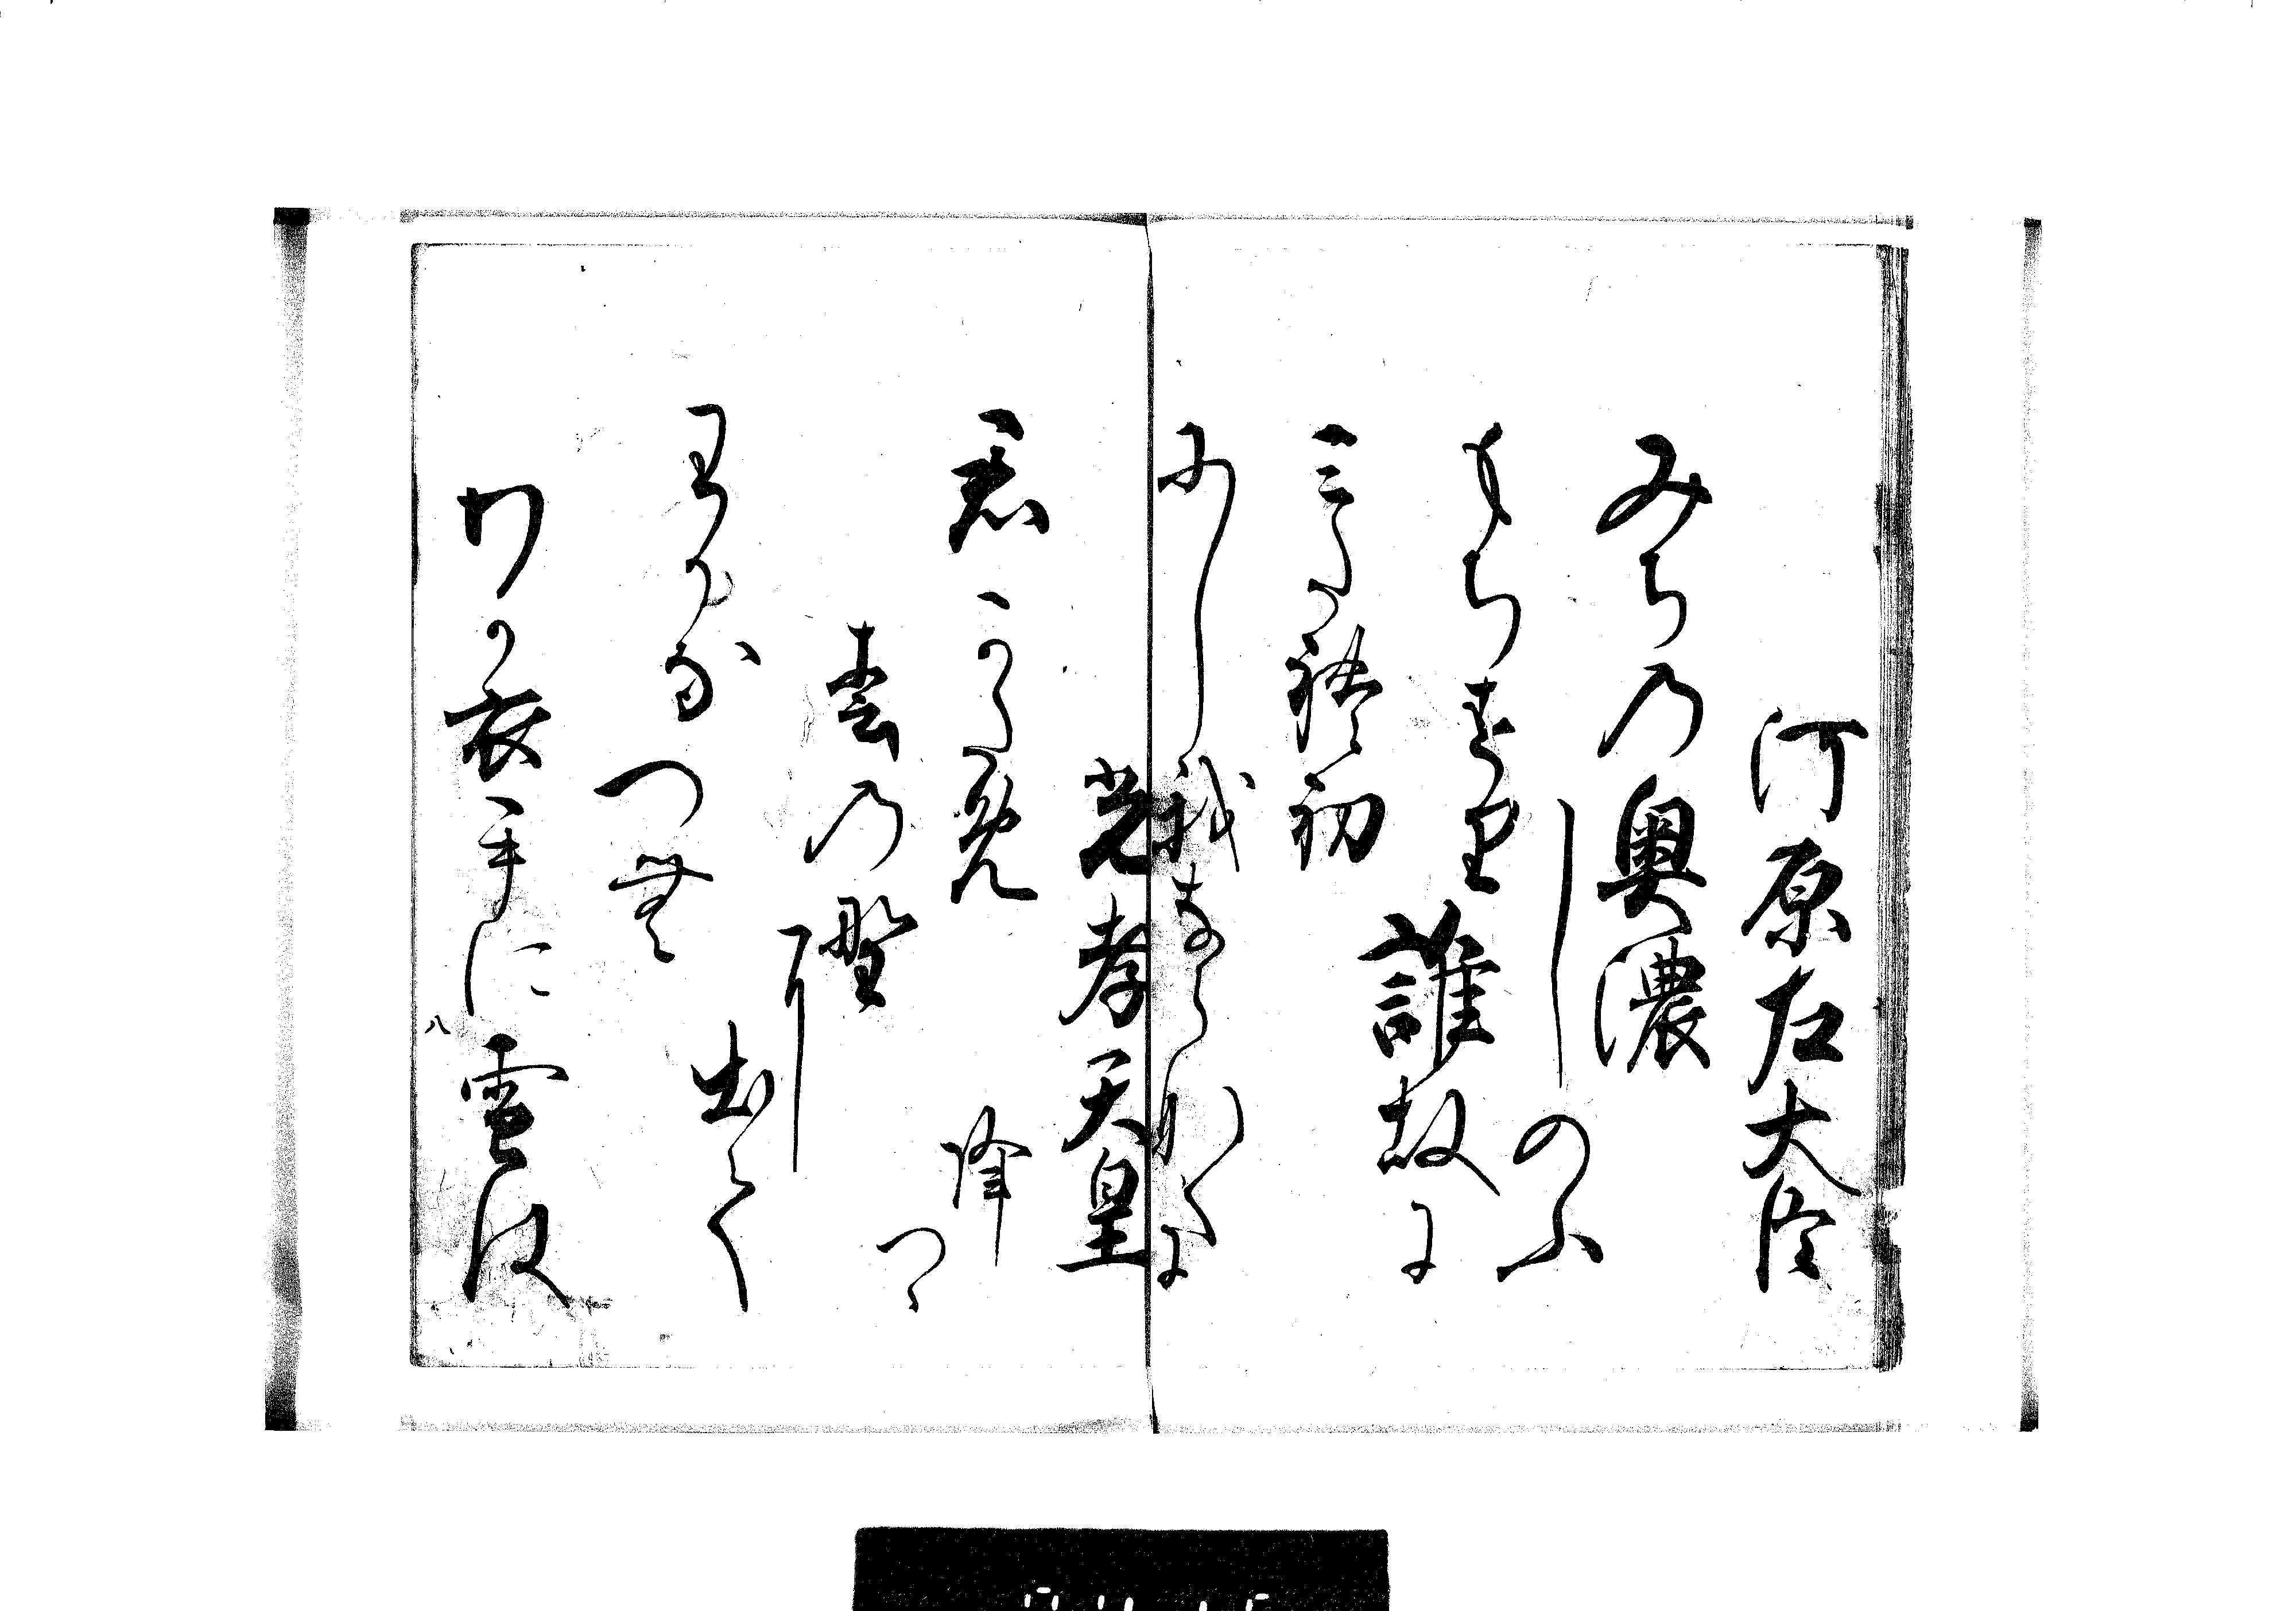 河原左大臣
みちの奥濃
しのふ
もちすり
誰故に
三たれ初
にし我ならなくに
光孝天皇
君かため
春の野に
出て
わかなつむ
わか衣手に雪は
降つゝ
八